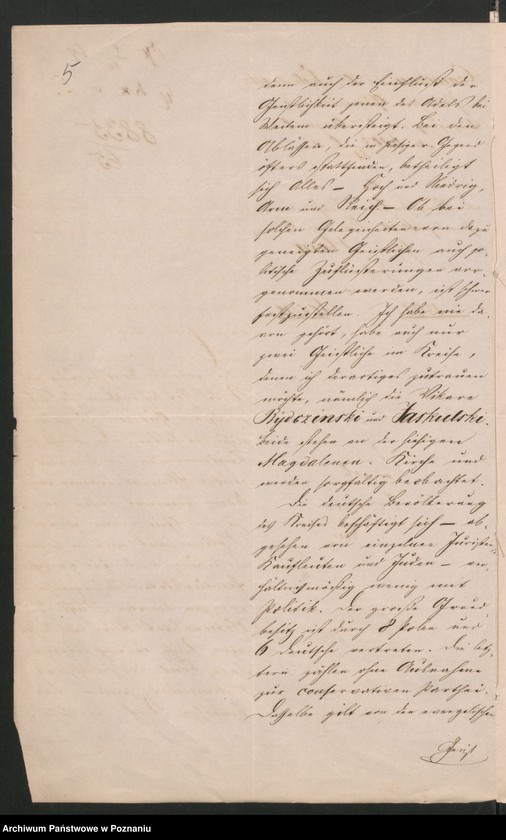 5
denn auch der Einfluß der
Geistlichkeit jenen des Adels bei
Weitem übersteigt. Bei den
Ablässen, die in hiesiger Gegend
öfters stattfinden, betheiligt
sich Alles – Hoch und Niedrig,
Arm und Reich – Ob bei
solchen Gelegenheiten von dazu
geneigten Geistlichen auch po-
litische Zuflüsterungen vor-
genommen werden, ist schwer
festzustellen. Ich habe nie da-
von gehört, habe auch nur
zwei Geistliche im Kreise,
denen ich derartiges zutrauen
möchte, nämlich die Vikare
Bydczinski und Jaskulski.
Beide stehen an der hiesigen
Magdalenen-Kirche und
werden sorgfältig beobachtet.
Die deutsche Bevölkerung
des Kreises beschäftigt sich – ab-
gesehen von einzelnen Juristen,
Kaufleuten und Juden – ver-
hältnißmäßig wenig mit
Politik. Der große Grund-
besitz ist durch 8 Polen und
6 Deutsche vertreten. Die letz-
tern zählen ohne Ausnahme
zur conservativen Parthei.
Dasselbe gilt von den evangelischen
Archiwum Państwowe w Poznaniu